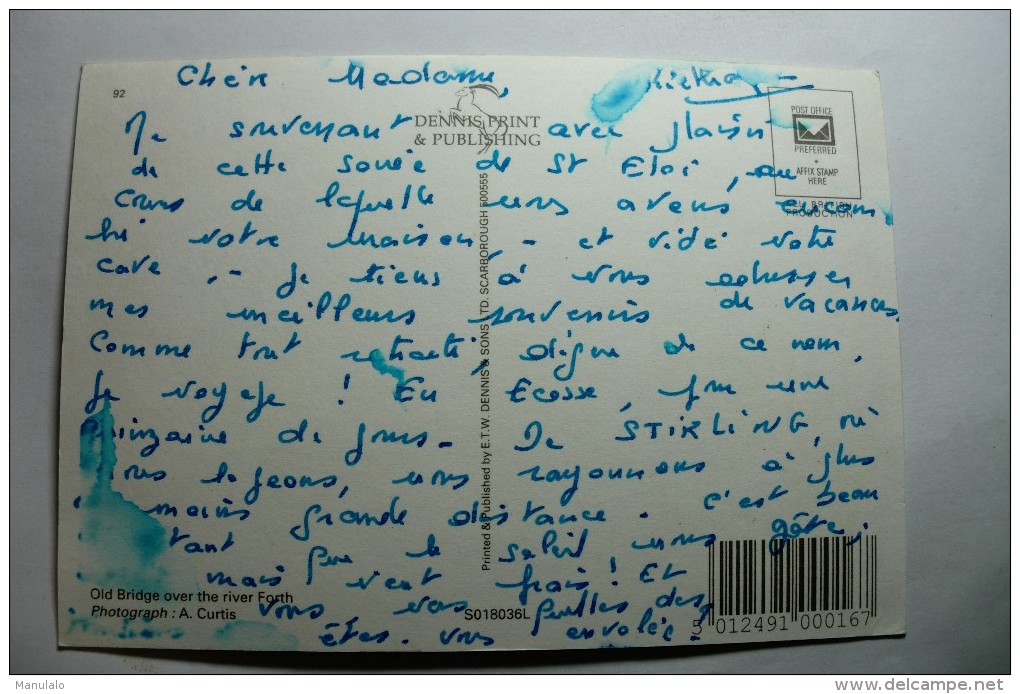 92
Chère Madame,
DENNIS PRINT
& PUBLISHING
POST OFFICE
PREFERRED
AFFIX STAMP
HERE
BRITISH
PRODUCTION
Me souvenant avec plaisir
de cette soirée de St Eloi, au
cours de laquelle nous avons encom
bré votre maison, - et vidé votre
cave, - je tiens à vous adresser
mes meilleurs souvenirs de vacances.
Comme tout retraité, digne de ce nom,
je voyage ! En Ecosse, pour une
quinzaine de jours - De STIRLING, où
nous logeons, nous rayonnons à plus
moins grande distance. C'est beau
tant que le soleil nous gâte,
mais vent frais ! Et
vous vos quelles des
êtes-vous envolée ?
Old Bridge over the river Forth
Photograph : A. Curtis
S018036L
Printed & Published by E.T.W. DENNIS & SONS LTD. SCARBOROUGH 500555
5 012491 000167
Manulalo
delcampe.net